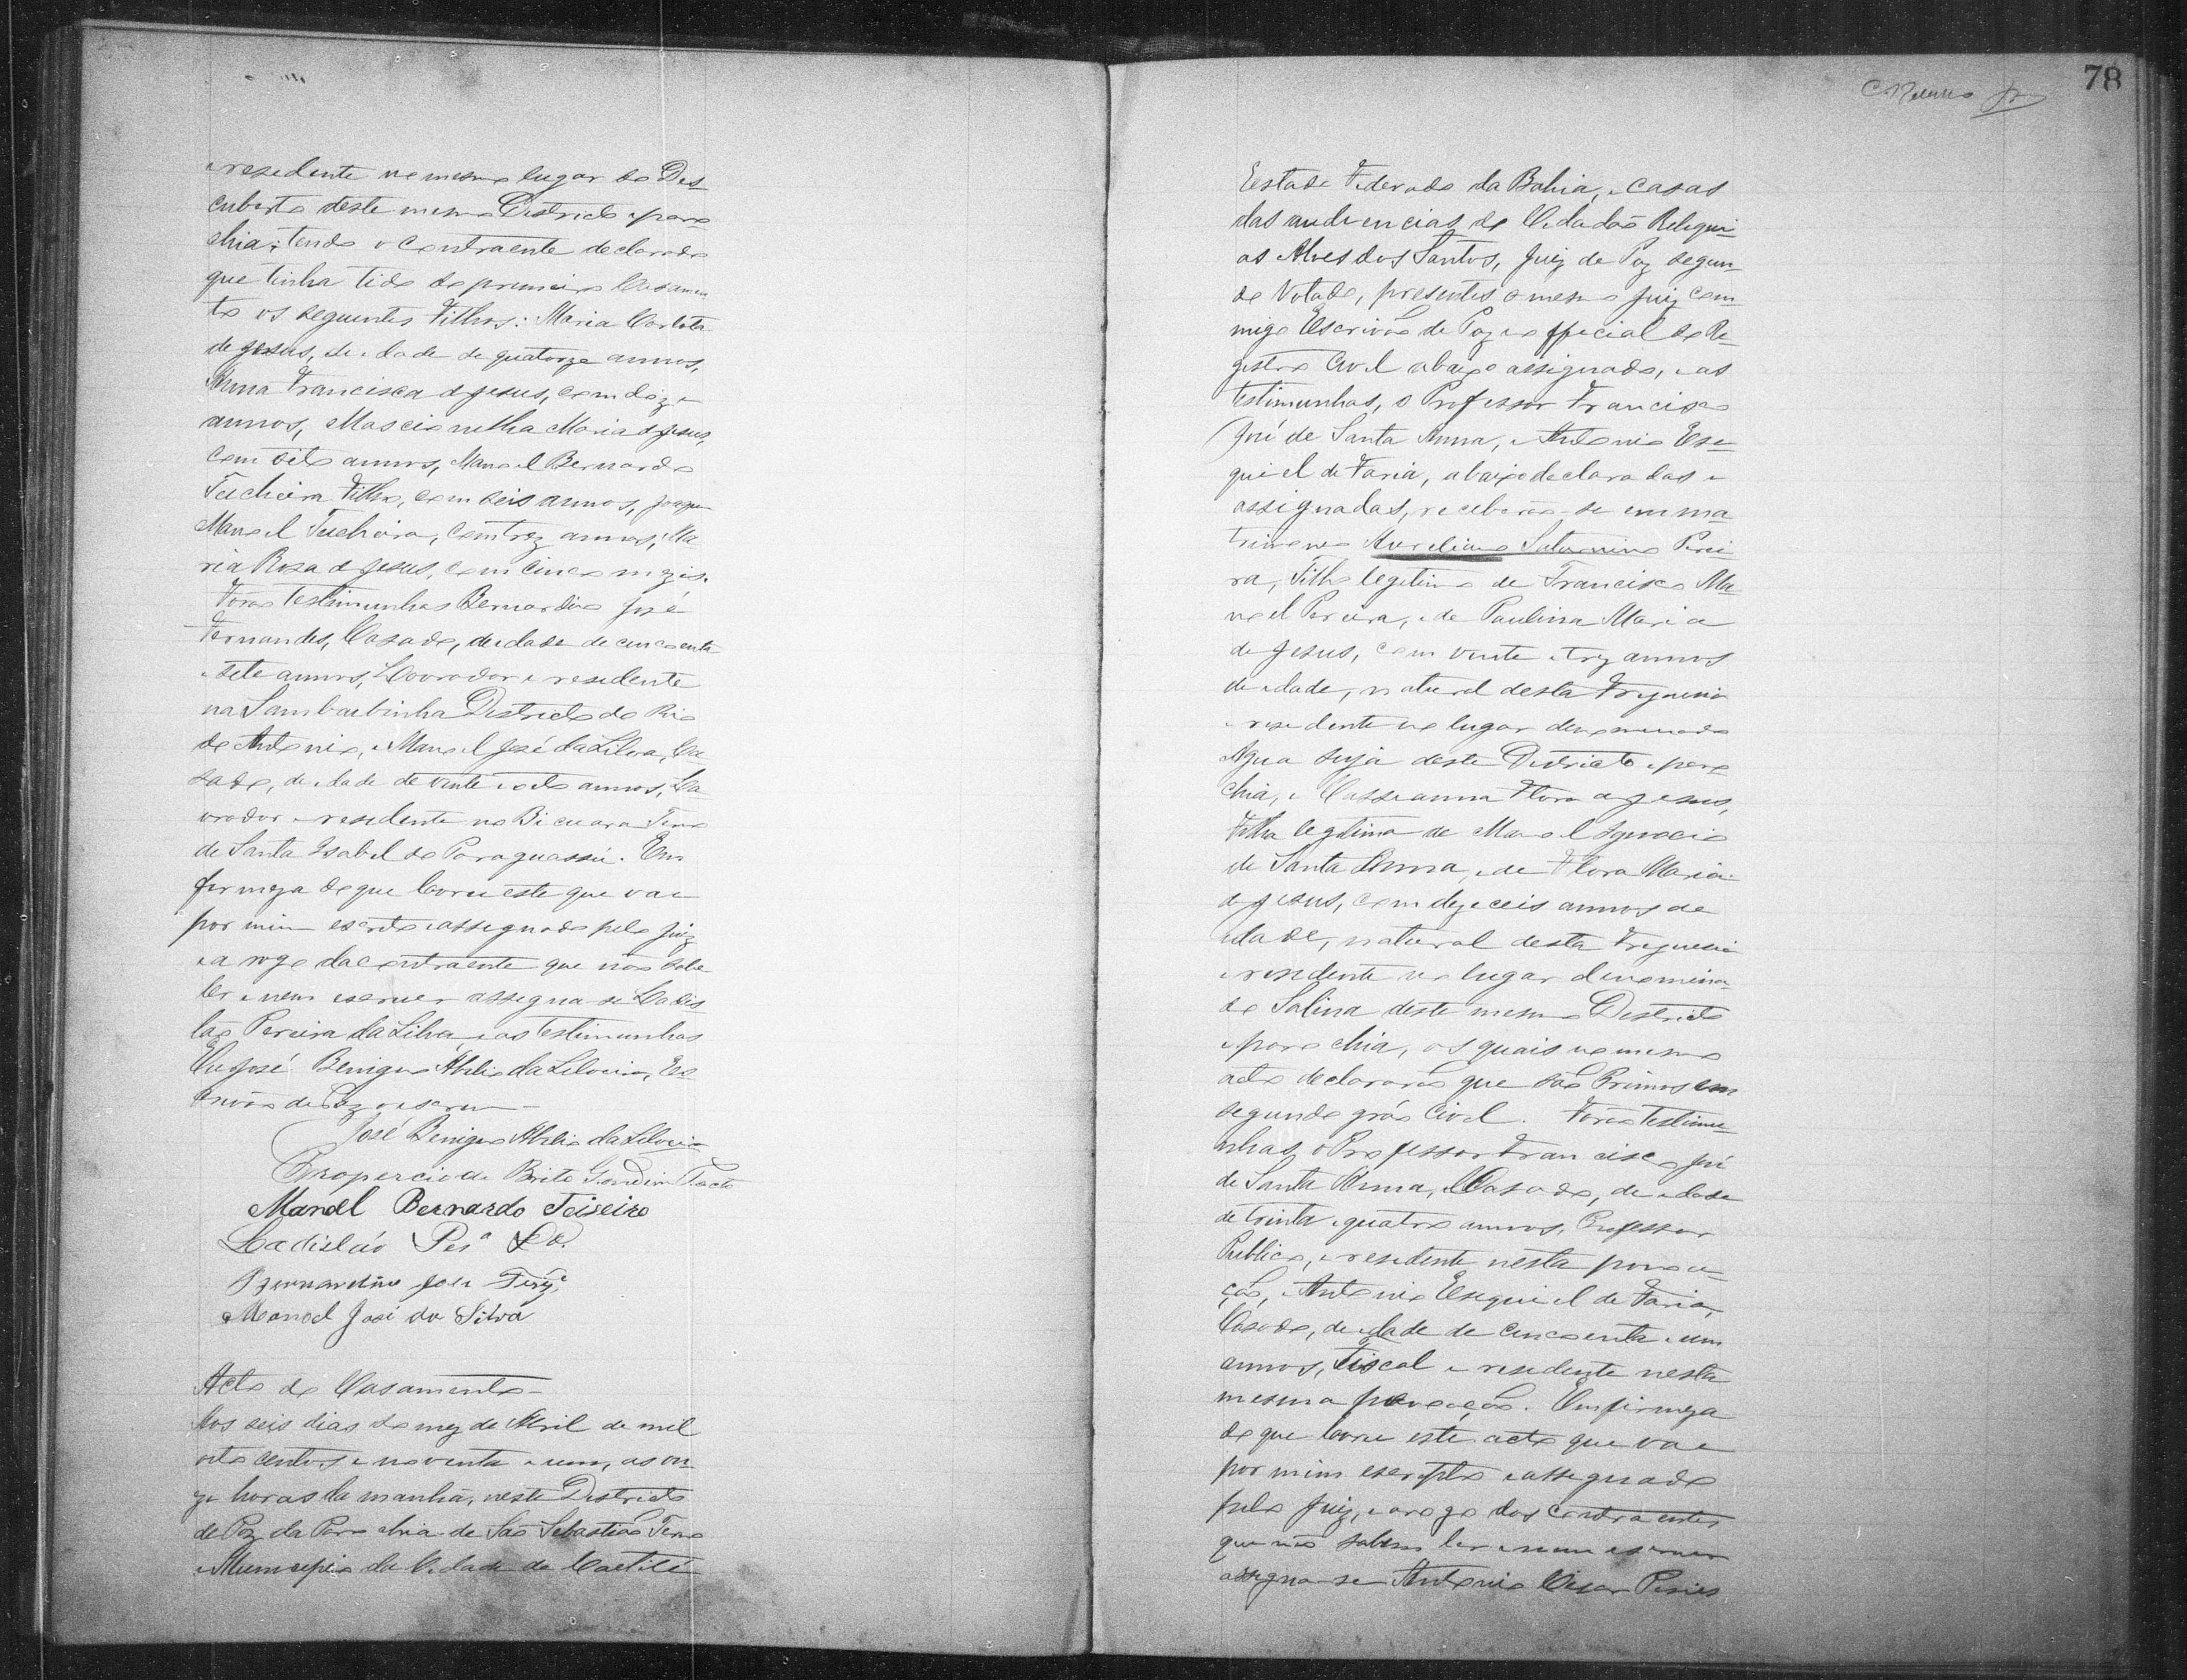 e resedente no mesmo lugar do Des-
cuberto deste mesmo Districto e paro
chia; tendo o contraente declarado
que tinha tido do primeiro Casamen
to os seguintes Filhos: Maria Carlota
de Jesus, de idade de quatorze annos,
Anna Francisca de Jesus, com doze
annos, Maria de Jesus,
com oito annos, Manoel Bernardo
Teicheira Filho, com seis annos, Joaquim
Manoel Teicheira, com trez annos, Ma
ria Rosa de Jesus, com cinco mezes.
Forão Testimunhas Bernardino José
Fernandes, Casado, de idade de cincoenta
e sete annos, Lavrador e resedente
na Sambaibinha Districto do Rio
do Antonio, e Manoel José da Silva, Ca
sado, de idade de vinte e oito annos, La
vrador e resedente no Bicuara Termo
de Santa Isabel do Paraguassú. Em
firmeza do que lavrei este que vae
por mim escrito e assegnado pelo Juiz
e a rogo da contraente que não sabe
ler e nem escrever assegna-se Ladis
láo Pereira da Silva, e as testimunhas
Eu José Benigno Abilio da Silveira, Es
crivão de Paz o escrevi
José Benigno Abilio da Silveira
Propercio de Brito Gondim
Manoel Bernardo Teixeira
Ladisláo Perª
Bernardino José Ferz
Manoel José da Silva
Acto de Casamento-
Aos seis dias do mez de Abril de mil
oito centos e noventa e um, as on-
ze horas da manhã, neste Districto
de Paz da Parochia de São Sebastião Termo
e Municipio da Cidade de Caetité
78
Estado Federado da Bahia, e casas
das audiencias do Cidadão Reliqui-
as Alves dos Santos, Juiz de Paz segun-
do Votado, presentes o mesmo Juiz com-
migo Escrivão de Paz e official do Re-
gistro Civil abaixo assignado, e as
Testimunhas, o Professor Francisco
José de Santa Anna, e Antonio Ese-
quiel de Faria, abaixo declaradas e
assignadas, receberão-se em ma-
trimonio Aureliano Saturnino Perei
ra, Filho legitimo de Francisco Ma-
noel Pereira, e de Paulina Maria
de Jesus, com vinte e trez annos
de idade, natural desta Freguesia
e resedente no lugar denominado
Agua suja deste Districto e paro
chia, e Casseanna Flora de Jesus,
Filha legitima de Manoel Ignacio
de Santa Anna, e de Flora Maria
de Jesus, com dezeceis annos de
idade, natural desta Freguesia
e resedente no lugar denomina-
do Salina deste mesmo Districto
e parochia, os quais no mesmo
acto declararão que são Primos em
segundo gráo Civil. Forão Testimu-
nhas o Professor Francisco José
de Santa Anna, Casado, de idade
de trinta e quatro annos, Professor
Publico, e resedente nesta povoa-
ção, e Antonio Esequiel de Faria,
Casado, de idade de cincoenta e um
annos, Fiscal e resedente nesta
mesma povoação. Em firmeza
do que lavrei este acto que vae
por mim escripto e assegnado
pelo Juiz, e a rogo dos contraentes
que não sabem ler e nem escrever
assegna-se Antonio Cesar